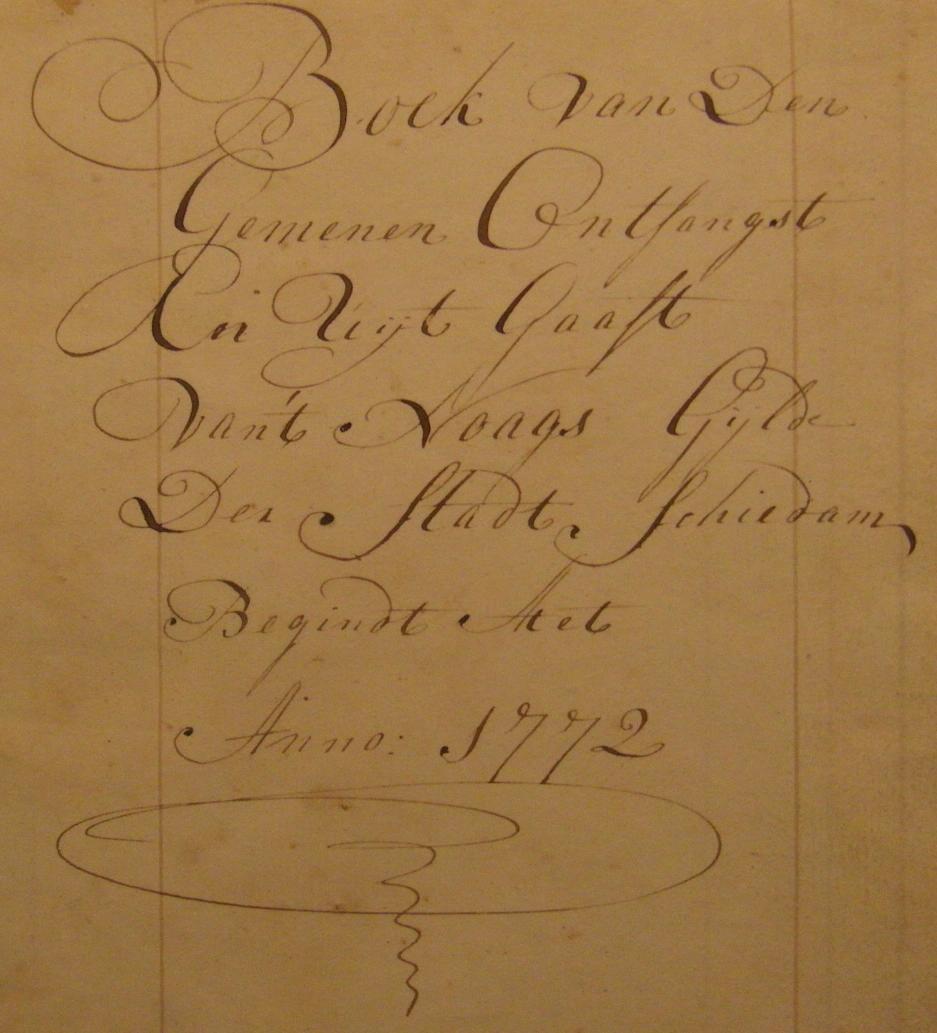 Boek van Den
Gemenen Ontfangst
En Uijt Gaaft
van't Noags Gijlde
Der Stadt Schiedam
Begindt Met
Anno: 1772